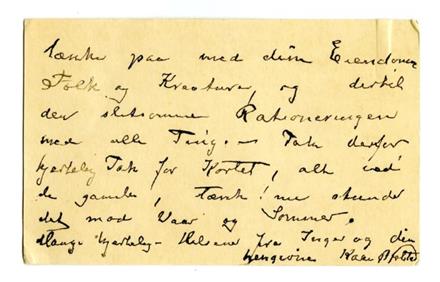 tænke paa med din Eiendom
Folk og Kreature, og dertil
den slitsomme Rationeringen
med alle Ting. — Tak derfor
hjertelig Tak for Kortet, alt ved
de gamle, tænk! nu stunder
det mod Vaar og Sommer.
Mange hjertelig- Hilsener fra Inger og din
hengivne